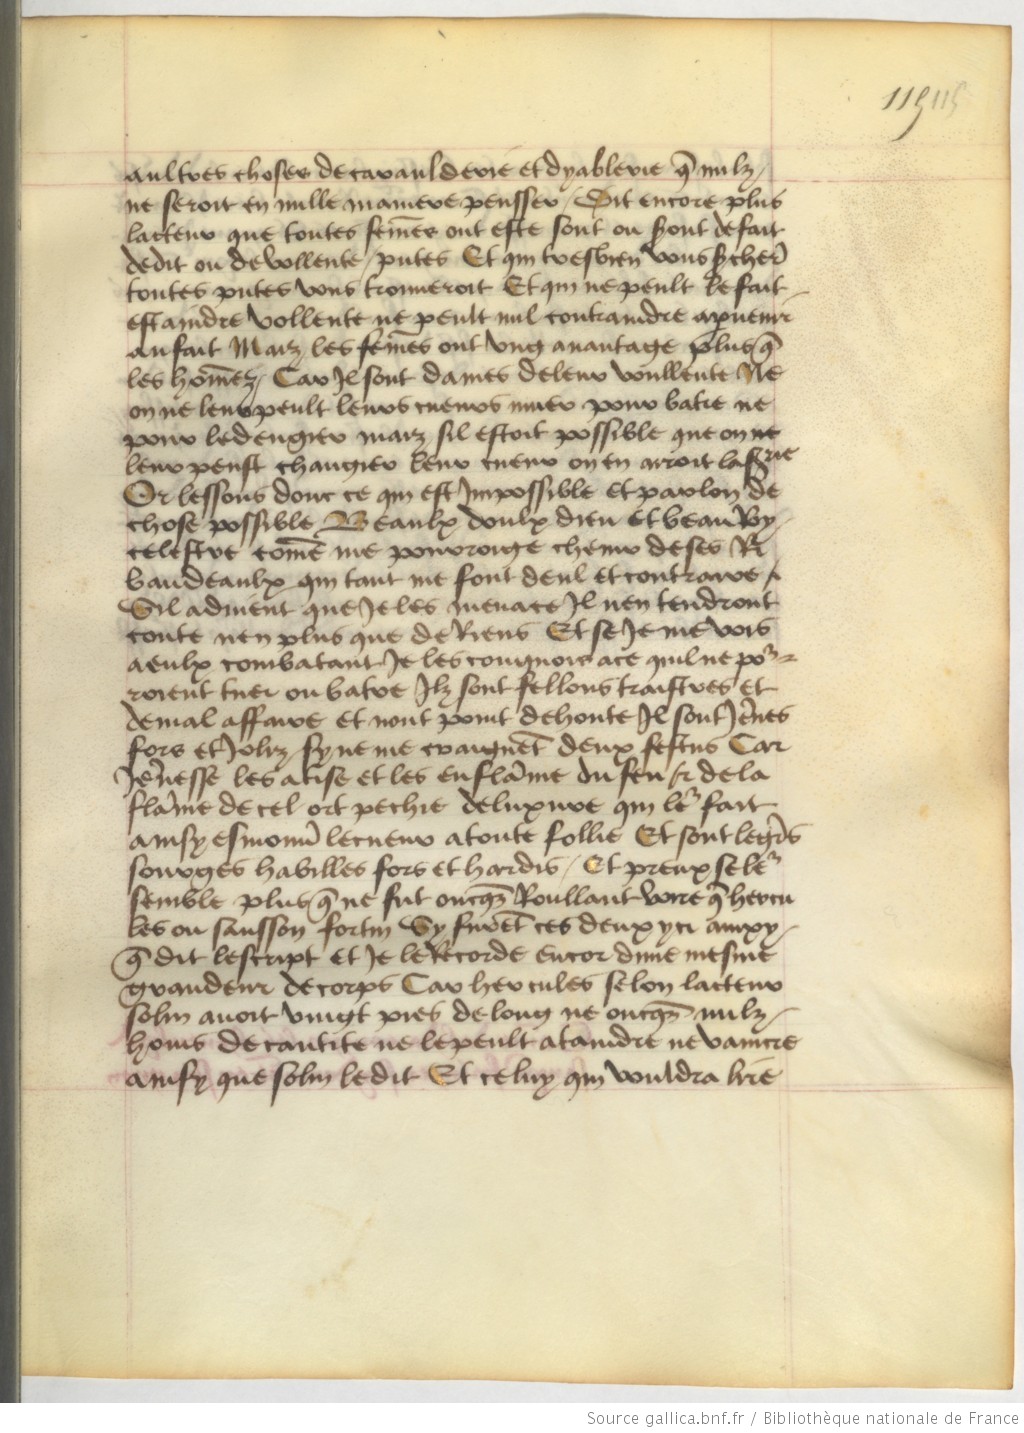 115 115
aultres choses de caraulderie et dyablerie q̄ nulz /
ne seroit en mille maniere pensser / Dit encore plus
lacteur que toutes fem̄es ont este sont ou sront de fait
de dit ou de vollente / putes Et qui tresbien vous
toutes putes vous trouueroit Et qui ne peult le fait /
estaindre vollente ne peult nul contraindre a
au fait Maiz les fem̄es ont vng auantage plus q̄
les hom̄ez / Car Jl sont dames de leur voullente Ne
on ne leur peult leurs cueurs muer pour batre ne
pour ledengier maiz sil estoit possible que on ne
leur peust changier leur cueur on en arroit la
Or lessons donc ce qui est Jmpossible et parlon de
chose possible Beaulx doulx dieu et beau Roy /
celestre com̄e me pourrouge cheuir de ses Ri
baudeaulx qui tant me font deul et contraire /
Sil aduient que Je les menace Jl nen tendront
conte nen plus que de Riens Et se Je me vois
a eulx combatant Je les congnois a ce quil ne por̄
roient tuer ou batre Jlz sont fellons traistres et
de mal affaire et nont point de honte Jl sont Jeūes
fors et Joliz sy ne me craignēt deux festus Car
Jeūnesse les atise et les enflam̄e du feu & de la
flam̄e de cel ort pechie de luxure qui leʳ fait
ainsy esmouuoir le cueur a toute follie Et sont legiers
souges habilles fors et hardis / Et preux se leʳ
semble plus q̄ ne fut oncqz Roullant voire q̄ hercu
les ou sansson fortin Sy furēt ces deux yci ainxy /
q̄ dit lescript et Je le Recorde encor dune mesme
grandeur de corps Car hercules selon lacteur
solin auoit vingt pies de long ne oncqz nulz /
homs de cantite ne le peult ataindre ne vaincre
ainsy que solin le dit Et celuy qui vouldra lire
Source gallica.bnf.fr / Bibliothèque nationale de France